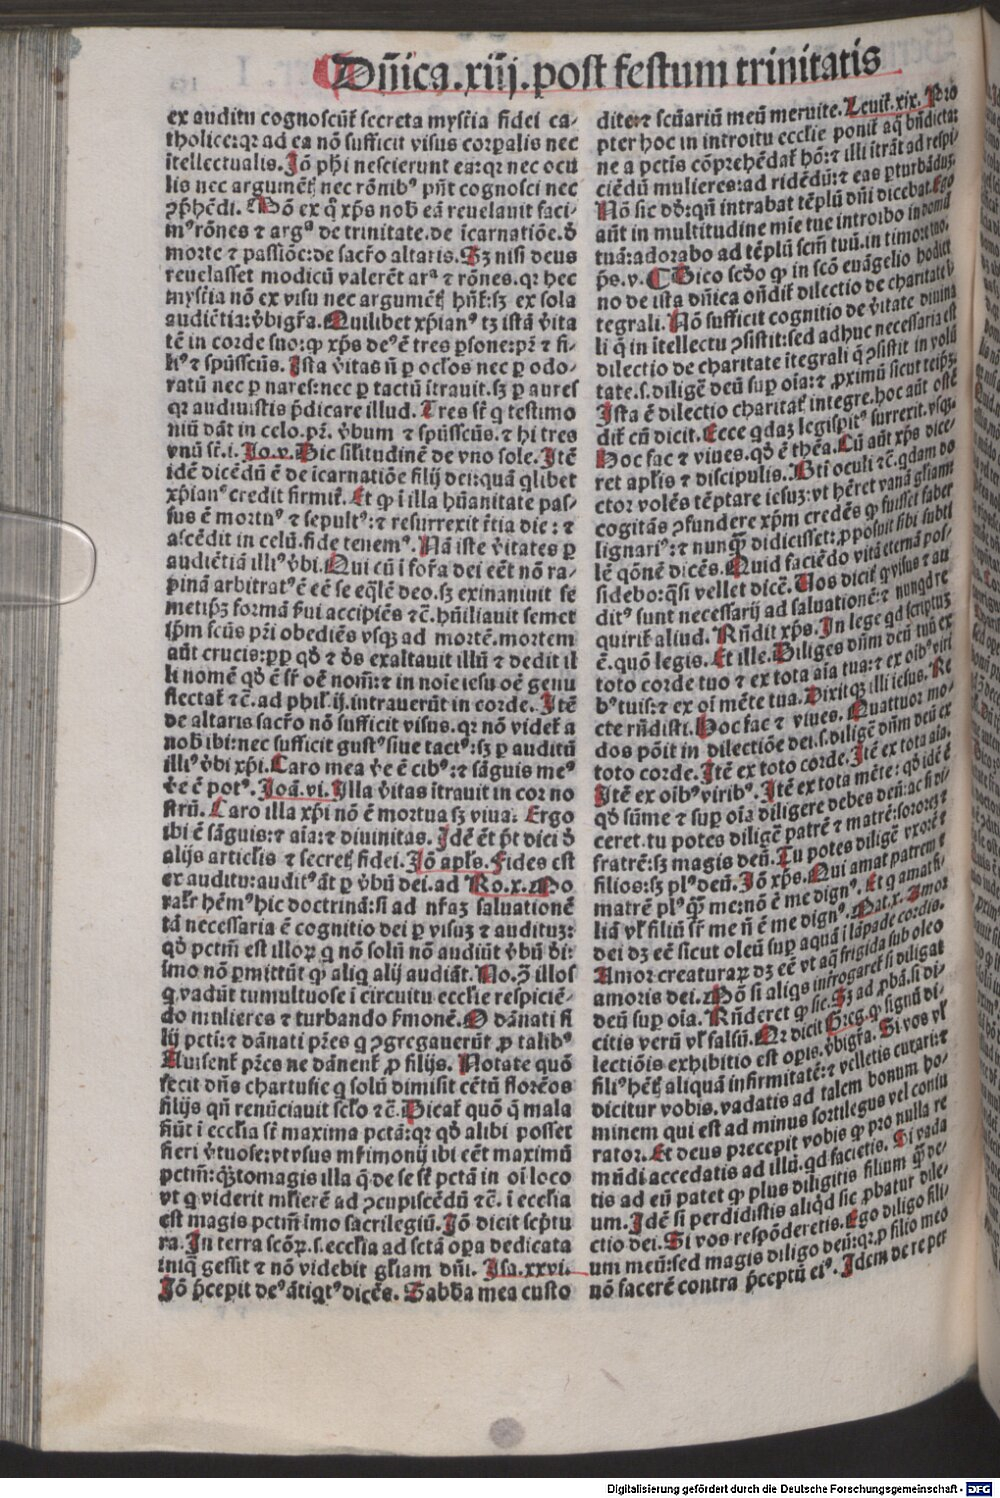 Dñica.xiij.post festum trinitatis
ex auditu cognoscũt secreta mysteria fidei ca-
tholice: qr ad ea nõ sufficit visus corꝑalis nec
ĩtellectualis. Jõ phi nescierunt ea: qr nec ocu
lis nec argumẽtꝭ nec rõnibꝰ pñt cognosci nec
ꝯp̃hẽdi. Sõ ex q̃ xp̃s nob eã reuelauit faci-
mꝰ rõnes ⁊ argᵃ de trinitate. de ĩcarnatiõe. ꝺ̃
morte ⁊ passiõe: de sacro altaris. Sꝫ nisi deus
reuelasset modicũ valerẽt arᵃ ⁊ rõnes. qr hec
mysteria nõ ex visu nec argumẽtꝭ hñt: sꝫ ex sola
audiẽtia: v̾bigr̃a. Quilibet xp̃ianꝰ tꝫ istã v̾ita
tẽ in corde suo: ꝙ xp̃s deꝰ ẽ tres ꝑsone: pr̃ ⁊ fi-
liꝰ ⁊ sp̃ussctũs. Ista v̾itas ñ ꝑ oclos nec ꝑ odo-
ratũ nec ꝑ nares: nec ꝑ tactũ ĩtrauit. sꝫ ꝑ aures
qr audiuistis p̃dicare illud. Tres st̃ q testimo
niũ dãt in celo. pr̃. v̾bum ⁊ sp̃ussctũs. ⁊ hi tres
vnũ st̃. i. Jo. v. Sic silitudinẽ de vno sole. Itẽ
idẽ dicẽdũ ẽ de ĩcarnatiõe filij dei: quã qlibet
xp̃ianꝰ credit firmit̃. Et ꝙ ĩ illa hũanitate pas-
sus ẽ mortuꝰ ⁊ sepultꝰ: ⁊ resurrexit t̃tia die: ⁊
ascẽdit in celũ. fide tenemꝰ. Nã iste v̾itates ꝑ
audiẽtiã illiꝰ v̾bi. Qui cũ ĩ for̃a dei eẽt nõ ra-
pinã arbitratꝰ ẽ eẽ se eq̃lẽ deo. sꝫ exinaniuit se
metip̃ꝫ formã s̾ui accipiẽs ⁊c̃. hũiliauit semet
ip̃m factus pr̃i obediẽs vsqꝫ ad mortẽ. mortem
aũt crucis: ꝓp qꝺ ⁊ ꝺs exaltauit illũ ⁊ dedit il
li nomẽ qꝺ ẽ sr̃ oẽ nom̃: ⁊ in noĩe iesu oẽ genu
flectat̃ ⁊c̃. ad phil. ij. intrauerũt in corde. Itẽ
de altaris sacr̃o nõ sufficit visus. qr nõ videt̃ a
nob̃ ibi: nec sufficit gustꝰ siue tactꝰ: sꝫ ꝑ auditũ
illiꝰ v̾bi xp̃i. Caro mea v̾e ẽ cibꝰ: ⁊ sãguis meꝰ
v̾e ẽ potꝰ. Joã. vi. Illa v̾itas ĩtrauit in cor no
strũ. Caro illa xp̃i nõ ẽ mortua sꝫ viua. Ergo
ibi ẽ sãguis: ⁊ aĩa: ⁊ diuinitas. Idẽ ẽt p̃t dici ꝺ̃
alijs articlis ⁊ secretꝭ fidei. Jõ aplꝰs. Fides est
ex auditu: auditꝰ ãt ꝑ v̾bũ dei. ad Ro. x. Mo
ralr̃ hẽmꝰ hic doctrinã: si ad nr̃aꝫ saluationẽ
tã necessaria ẽ cognitio dei ꝑ visuꝫ ⁊ audituꝫ:
qꝺ pctm̃ est illoꝝ q nõ solũ nõ audiũt v̾bũ ꝺi:
ĩmo nõ ꝑmittũt ꝙ aliq alij audiãt. No. ꝯ illos
q vadũt tumultuose ĩ circuitu ecclie respiciẽ-
do mulieres ⁊ turbando s̾monẽ. O dãnati fi
lij pcti: ⁊ dãnati pr̃es q ꝯgregauerũt ꝓ talibꝰ
Auisent̃ pr̃es ne dãnent̃ ꝓ filijs. Notate quõ
fecit dñs chartusie q solũ dimisit cẽtũ floreõs
filijs qñ renũciauit sclo ⁊c̃. Dicat̃ quõ q̃ mala
fiũt ĩ ecclia st̃ maxima pctã: qr qꝺ alibi posset
fieri v̾tuose: vt vsus mr̃imonij ibi eẽt maximũ
pctm̃: q̃ꝫtomagis illa q̃ de se st̃ pctã in oĩ loco
vt q viderit mlierẽ ad ꝯcupiscẽdũ ⁊c̃. ĩ ecclia
est magis pctm̃ ĩmo sacrilegiũ. Jõ dicit sc̃ptu
ra. In terra sctõꝝ. s. ecclia ad sctã oꝑa dedicata
iniq̃ gessit ⁊ nõ videbit gliam dñi. Isa. xxvi.
Jõ p̃cepit deꝰ ãtiqtꝰ dicẽs. Sabb̃a mea custo
dite: ⁊ sctũariũ meũ metuite. Leuit̃. xix. Pro
pter hoc in introitu ecclie ponit̃ aq̃ bñdicta:
ne a pctis cõprehẽdat̃ hõ: ⁊ illi ĩtrãt ad respi
ciẽdũ mulieres: ad ridẽdũ: ⁊ eas ꝑturbãduꝫ.
Nõ sic dd̃: qñ intrabat tẽplũ dñi dicebat. Ego
aũt in multitudine mie tue introibo in domũ
tuã: adorabo ad tẽplũ sctm̃ tuũ. in timore tuo.
p̃s. v. ¶ Dico scꝺo ꝙ in sctõ euãgelio hodier
no de ista dñica oñdit̃ dilectio de charitate ĩ
tegrali. Nõ sufficit cognitio de v̾itate diuina
li q̃ in ĩtellectu ꝯsistit: sed adhuc necessaria est
dilectio de charitate ĩtegrali q̃ ꝯsistit in volũ
tate. s. diligẽ deũ suꝑ oĩa: ⁊ ꝓximũ sicut teip̃ꝫ.
Ista ẽ dilectio charitat̃ integre. hoc aũt ostẽ
dit̃ cũ dicit. Ecce qdaꝫ legisꝑitꝰ surrexit. vsqꝫ.
Hoc fac ⁊ viues. qꝺ ẽ thẽa. Cũ aũt xp̃s dice-
ret aplis ⁊ discipulis. Bti oculi ⁊c̃. qdam do
ctor volẽs tẽptare iesuꝫ: vt hẽret vanã gliam:
cogitãs ꝯfundere xp̃m credẽs ꝙ fuisset faber
lignariꝰ: ⁊ nunq̃ꝫ didicisset: ꝓposuit sibi subti
lẽ qõnẽ dicẽs. Quid faciẽdo vitã eternã pos-
sidebo: q̃si vellet dicẽ. Uos dicit̃ ꝙ visus ⁊ au
ditꝰ sunt necessarij ad saluationẽ: ⁊ nunqd re
quirit̃ aliud. Rñdit xp̃s. In lege qd scriptuꝫ
ẽ. quõ legis. Et ille. Diliges dñm deũ tuũ ex
toto corde tuo ⁊ ex tota aĩa tua: ⁊ ex oĩbꝰ viri
bꝰ tuis: ⁊ ex oĩ mẽte tua. Dixitqꝫ illi iesus. Re
cte rñdisti. Hoc fac ⁊ viues. Quattuor mo-
dos põit in dilectiõe dei. s. diligẽ dñm deũ ex
toto corde. Itẽ ex toto corde. Itẽ ex tota aĩa.
Itẽ ex oĩbꝰ viribꝰ. Itẽ ex tota mẽte: qꝺ idẽ ẽ
qꝺ sũme ⁊ suꝑ oĩa diligere debes deũ: ac si di-
ceret. tu potes diligẽ patrẽ ⁊ matrẽ: sorores ⁊
fratrẽ: sꝫ magis deũ. Tu potes diligẽ vxorẽ ⁊
filios: sꝫ plꝰ deũ. Jõ xp̃s. Qui amat patrem ⁊
matrẽ plꝰ q̃ꝫ me: nõ ẽ me dignꝰ. Et q amat fi-
liã vl̃ filiũ sr̃ me ñ ẽ me dignꝰ. Mat. x. Amor
dei dꝫ eẽ sicut oleũ suꝑ aquã ĩ lãpade cordis.
Amor creaturaꝝ dꝫ eẽ vt aq̃ frigida sub oleo
amoris dei. Sõ si aliqs ĩnterrogaret̃ si diligat
deũ suꝑ oĩa. Rñderet ꝙ sic. Sꝫ ad ꝓbã. si di-
citis verũ vl̃ falsũ. Qr dicit Greg. ꝙ signũ di-
lectiõis exhibitio est oꝑis. v̾bigr̃a. Si vos vl̃
filiꝰ hẽtꝭ aliquã infirmitatẽ: ⁊ velletis curari: ⁊
dicitur vobis. vadatis ad talem bonum ho-
minem qui est ad minus sortilegus vel coniu
rator. Et deus precepit vobis ꝙ pro nulla re
mũdi accedatis ad illũ. qd facietis. Si vada
tis ad eũ patet ꝙ plus diligitis filium q̃ꝫ de-
um. Idẽ si perdidistis aliqd sic ꝓbatur dile-
ctio dei. Si vos respõderetis. Ego diligo fili-
um meũ: sed magis diligo deũ: qr ꝓ filio meo
nõ facerẽ contra p̃ceptũ eiꝰ. Idem de re per
Digitalisierung gefördert durch die Deutsche Forschungsgemeinschaft - DFG